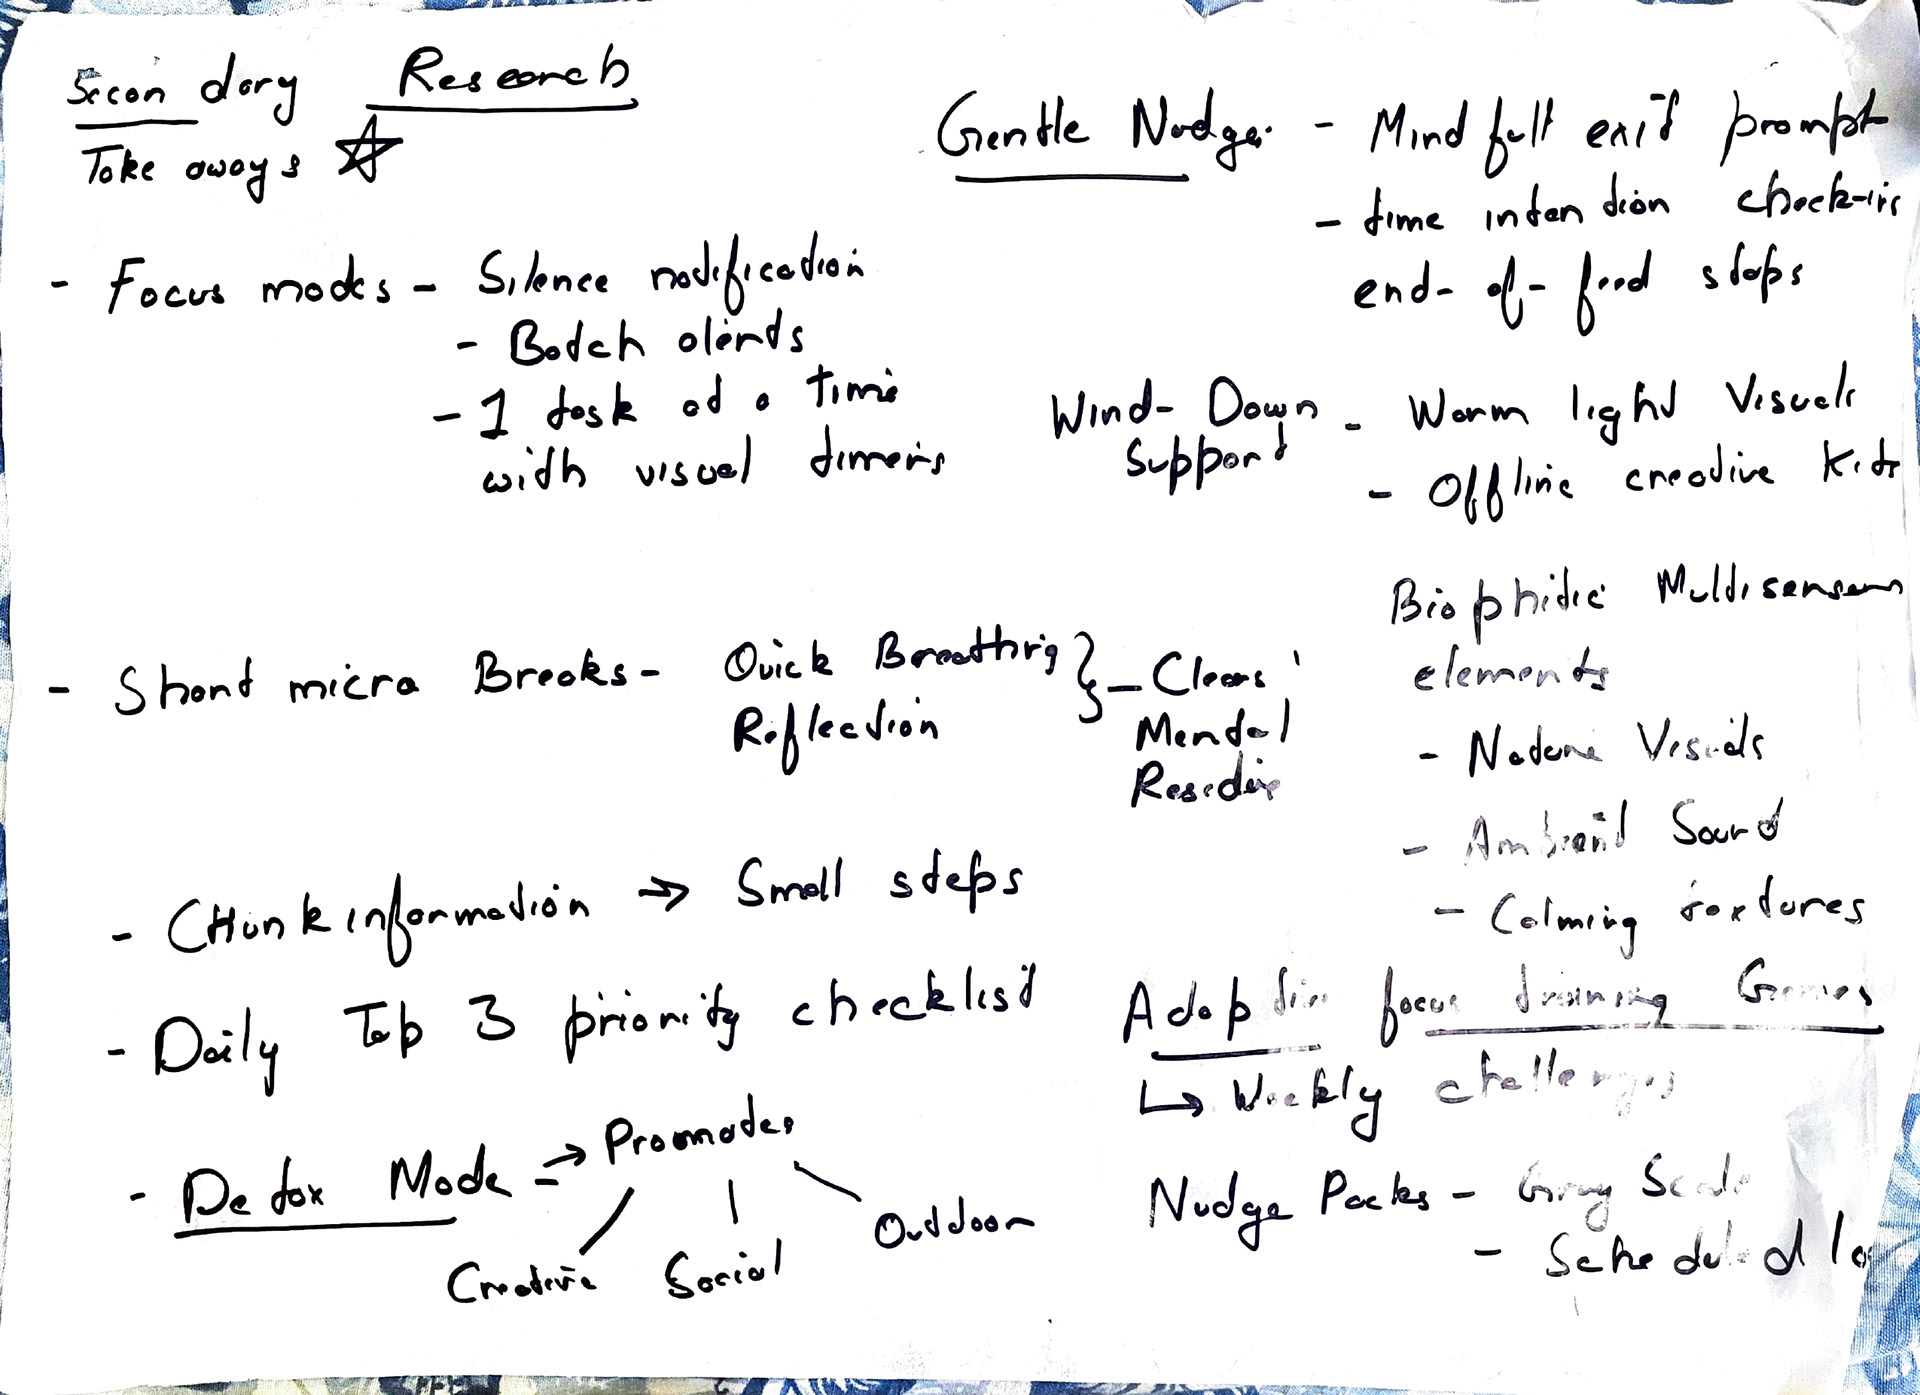 Secondary Research
Take aways
- Focus modes - Silence notification
- Batch alerts
- 1 task at a time
with visual timers
- Short micro Breaks - Quick Breathing
Reflection
- Clears
Mental
Residue
- CHunk information → Small steps
- Daily Top 3 priority checklist
- Detox Mode => Promotes
Creative Social Outdoor
Gentle Nudges - Mindfull exit prompt
- time intention check-ins
end-of-feed stops
Wind-Down Support - Warm light Visuals
- Offline creative Kits
Biophilic Multisensory
elements
- Nature Visuals
- Ambient Sound
- Calming textures
Adaptive focus training Games
↳ Weekly challenges
Nudge Packs - Gray Scale
- Scheduled